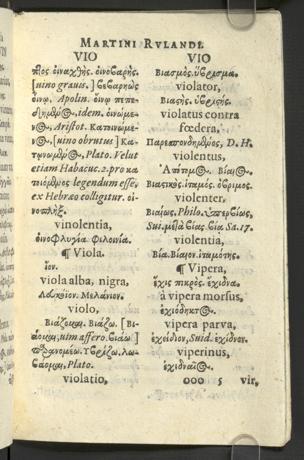 MARTINI RVLANDI
VIO
πλος οἰναχθὴς. οἰνοβαρὴς.
[uino grauis.] βεβαρηὼς
οἴνῳ. Apolin. οἴνῳ πεπε-
idem. οἰνώμε-
Aristot. Κατοινωμέ-
[uino obrutus] Κα-
Plato. Velut
etiam Habacuc. 2. pro κα
legendum esse,
ex Hebræo colligitur. οἰ-
νοπλήξ.
vinolentia,
οἰνοφλυγία. Φιλοινία.
¶ Viola.
ἴον.
viola alba, nigra,
Λευκόϊον. Μελάνιον.
violo,
Βιάζομαι. Βιάζω. [Βι-
άομαι, uim affero. βιάω]
παρανομέω. Ὑβρίζω. λω-
βάομαι, Plato.
violatio,
VIO
Βιασμὸς. ὕβρισμα.
violator,
Βιαστὴς. ὑβριστὴς.
violatus contra
fœdera,
Παρεσπονδημένος, D. H.
violentus,
Βίαιος.
Βιαστικὸς. ἰταμὸς. ὄβριμος.
violenter,
Βιαίως. Philo.
Sui. μετὰ βίας. βίᾳ Sa. 17.
violentia,
Βία. Βίαιον. ἰταμότης.
¶ Vipera,
ἔχις πικρὸς. ἔχιδνα.
à vipera morsus,
ἐχιόδηκτος.
vipera parva,
ἐχείδιον, Suid. ἐχίδνιον.
viperinus,
ἐχιδναῖος.
ooo 5 vir,